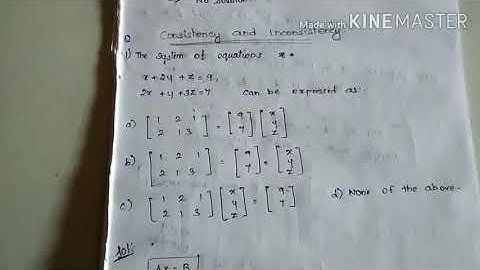 No solution
Made with KINEMASTER
Consistency and Inconsistency
1) The system of equations
x+2y+z=9,
2x+y+3z=7 can be expressed as
a) [1 2 1
2 1 3] = [9
7] [x
y
z]
b) [1 2 1
2 1 3] = [9
7] = [x
y
z]
c) [1 2 1
2 1 3] [x
y
z] = [9
7] d) None of the above.
Sol:
AX = B